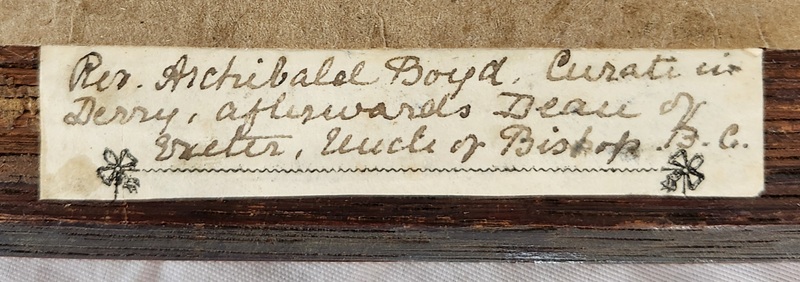 Rev. Archibald Boyd. Curate in
Derry, afterwards Dean of
Exeter, Uncle of Bishop B. C.